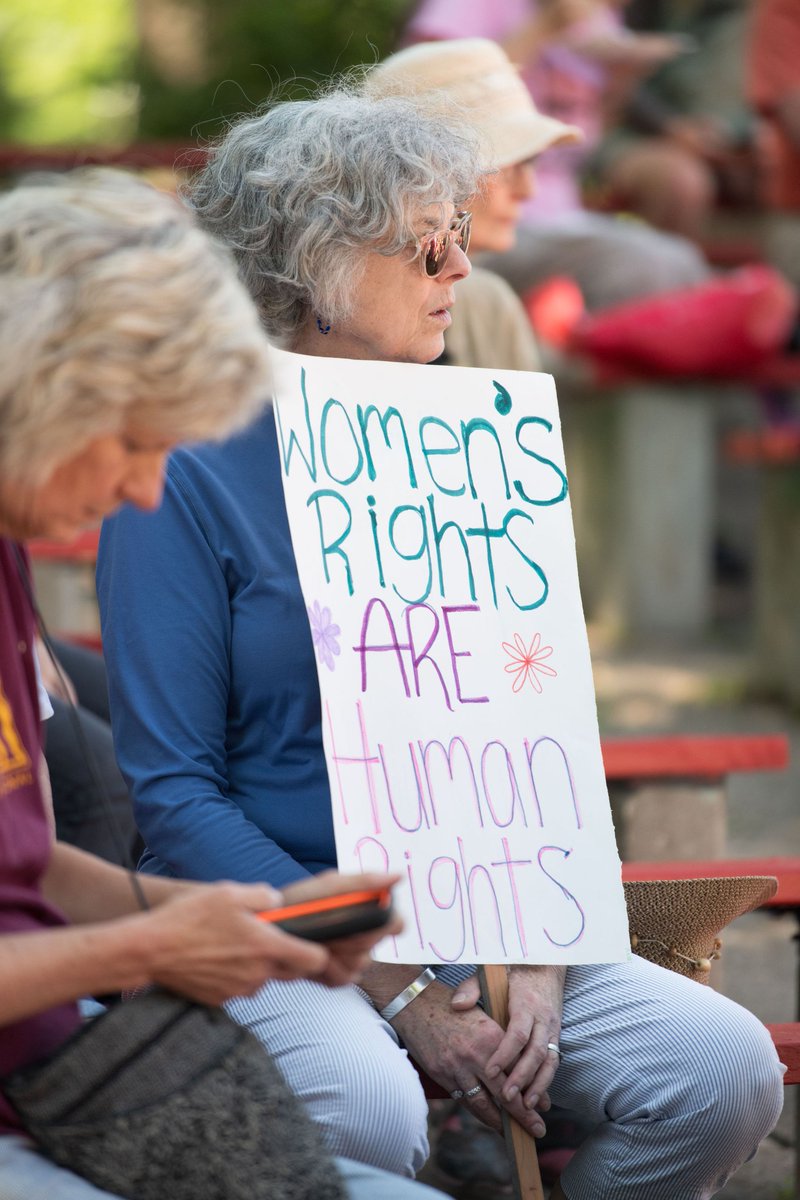 Women's
Rights
ARE
Human
Rights